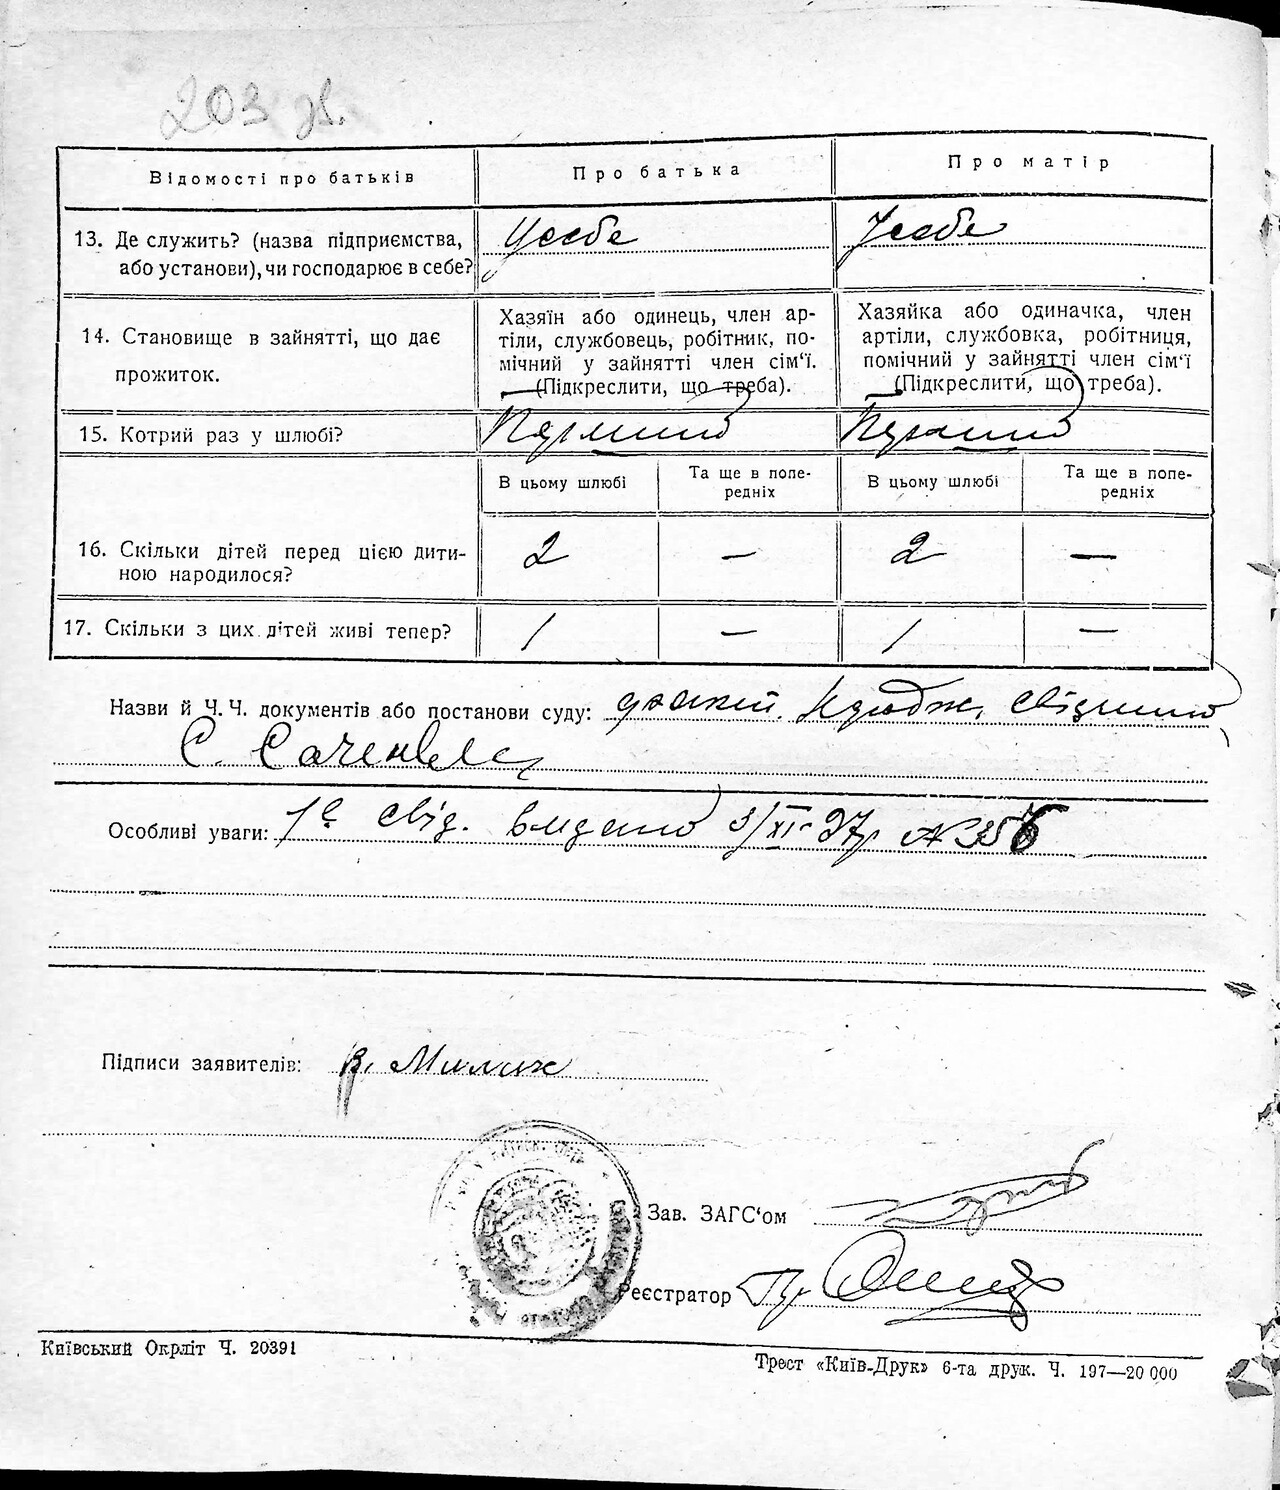 203 зв.
Відомості про батьків
Про батька
Про матір
13. Де служить? (назва підприємства,
або установи), чи господарює в себе?
У себе
У себе
14. Становище в зайнятті, що дає
прожиток.
Хазяїн або одинець, член ар-
тіли, службовець, робітник, по-
мічний у зайнятті член сім'ї.
(Підкреслити, що треба).
Хазяйка або одиначка, член
артіли, службовка, робітниця,
помічний у зайнятті член сім'ї
(Підкреслити, що треба).
15. Котрий раз у шлюбі?
Перший
Перший
В цьому шлюбі
Та ще в попе-
редніх
В цьому шлюбі
Та ще в попе-
редніх
16. Скільки дітей перед цією дити-
ною народилося?
2 — 2 —
17. Скільки з цих дітей живі тепер?
1 — 1 —
Назви й Ч. Ч. документів або постанови суду:
С.
Особливі уваги: свід. видано 3/XI-27р №
Підписи заявителів:
Зав. ЗАГС'ом
Реєстратор
Київський Окрліт Ч. 20391
Трест «Київ-Друк» 6-та друк. Ч. 197—20 000